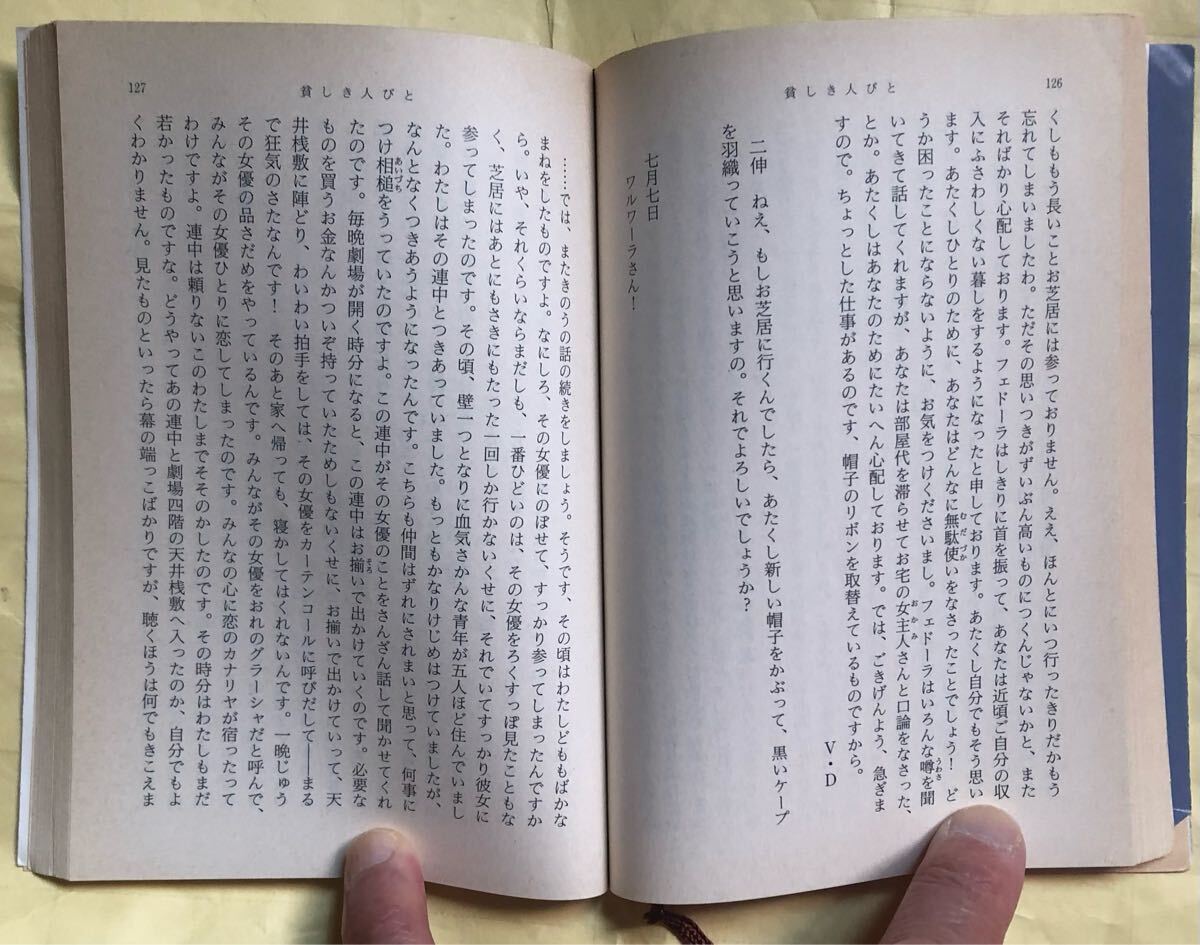 126
貧しき人びと
くしももう長いことお芝居には参っておりません。ええ、ほんとにいつ行ったきりだかもう
忘れてしまいましたわ。ただその思いつきがずいぶん高いものにつくんじゃないかと、また
そればかり心配しております。フェドーラはしきりに首を振って、あなたは近頃ご自分の収
入にふさわしくない暮しをするようになったと申しております。あたくし自分でもそう思い
ます。あたくしひとりのために、あなたはどんなに無駄使いをなさったことでしょう！　ど
うか困ったことにならないように、お気をつけくださいまし。フェドーラはいろんな噂を聞
いてきて話してくれますが、あなたは部屋代を滞らせてお宅の女主人さんと口論をなさった、
とか。あたくしはあなたのためにたいへん心配しております。では、ごきげんよう、急ぎま
すので。ちょっとした仕事があるのです、帽子のリボンを取替えているものですから。
V・D
二伸　ねえ、もしお芝居に行くんでしたら、あたくし新しい帽子をかぶって、黒いケープ
を羽織っていこうと思いますの。それでよろしいでしょうか？
七月七日
ワルワーラさん！
127
貧しき人びと
……では、またきのうの話の続きをしましょう。そうです、その頃はわたしどももばかな
まねをしたものですよ。なにしろ、その女優にのぼせて、すっかり参ってしまったんですか
ら。いや、それくらいならまだしも、一番ひどいのは、その女優をろくすっぽ見たこともな
く、芝居にはあとにもさきにもたった一回しか行かないくせに、それでいてすっかり彼女に
参ってしまったのです。その頃、壁一つとなりに血気さかんな青年が五人ほど住んでいまし
た。わたしはその連中とつきあっていました。もっともかなりけじめはつけていましたが、
なんとなくつきあうようになったんです。こちらも仲間はずれにされまいと思って、何事に
つけ相槌をうっていたのですよ。この連中がその女優のことをさんざん話して聞かせてくれ
たのです。毎晩劇場が開く時分になると、この連中はお揃いで出かけていくのです。必要な
ものを買うお金なんかついぞ持っていたためしもないくせに、お揃いで出かけていって、天
井桟敷に陣どり、わいわい拍手をしては、その女優をカーテンコールに呼びだして――まる
で狂気のさたなんです！　そのあと家へ帰っても、寝かしてはくれないんです。一晩じゅう
その女優の品さだめをやっているんです。みんながその女優をおれのグラーシャだと呼んで、
みんながその女優ひとりに恋してしまったのです。みんなの心に恋のカナリヤが宿ったって
わけですよ。連中は頼りないこのわたしまでそそのかしたのです。その時分はわたしもまだ
若かったものですな。どうやってあの連中と劇場四階の天井桟敷へ入ったのか、自分でもよ
くわかりません。見たものといったら幕の端っこばかりですが、聴くほうは何でもきこえま